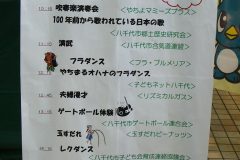 吹奏楽演奏会 <やちよマミーズブラス>
100年前から歌われている日本の歌
<八千代市郷土歴史研究会>
演武 <八千代市合気道連盟>
フラダンス <フラ・プルメリア>
やちまるオハナのフラダンス
<子どもネット八千代>
夫婦漫才 <リズミカルガス>
ゲートボール体験
<八千代市ゲートボール連合会>
玉すだれ <玉すだれピーナッツ>
レクダンス
<八千代市子ども会育成連絡協議会>